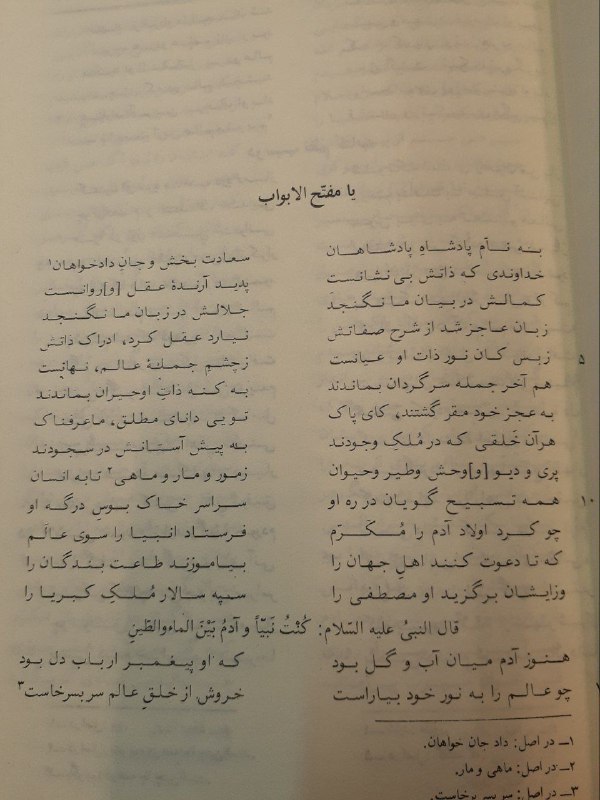 یا مفتّح الابواب
به نام پادشاهِ پادشاهان سعادت بخش و جانِ دادخواهان۱
خداوندی که ذاتش بی نشانست پدید آرندهٔ عقل [و]روانست
کمالش در بیان ما نگنجد جلالش در زبان ما نگنجد
زبان عاجز شد از شرح صفاتش نیارد عقل کرد، ادراک ذاتش
۵ زبس کان نور ذات او عیانست زچشمِ جملهٔ عالم، نهانست
هم آخر جمله سرگردان بماندند به کنه ذاتِ اوحیران بماندند
به عجز خود مقر گشتند، کای پاک تویی دانای مطلق، ماعرفناک
هرآن خَلقی که در مُلکِ وجودند به پیش آستانش در سجودند
پری و دیو [و]وحش وطیر وحیوان زمور و مار و ماهی۲ تابه انسان
۱۰ همه تسبیح گویان در ره او سراسر خاک بوسِ درگه او
چو کرد اولاد آدم را مُکَرّم فرستاد انبیا را سوی عالَم
که تا دعوت کنند اهلِ جهان را بیاموزند طاعت بندگان را
وزایشان برگزید او مصطفی را سپه سالار مُلکِ کبریا را
قال النبیُ علیه السّلام: کُنْتُ نَبیّاً و آدمُ بَیْنَ الماءِوالطّینِ
هنوز آدم میان آب و گل بود که او پیغمبر ارباب دل بود
چو عالم را به نور خود بیاراست خروش از خلقِ عالم سربسرخاست۳
۱ــ در اصل: داد جان خواهان.
۲ــ در اصل: ماهی و مار.
۳ــ در اصل: سر بسر برخاست.